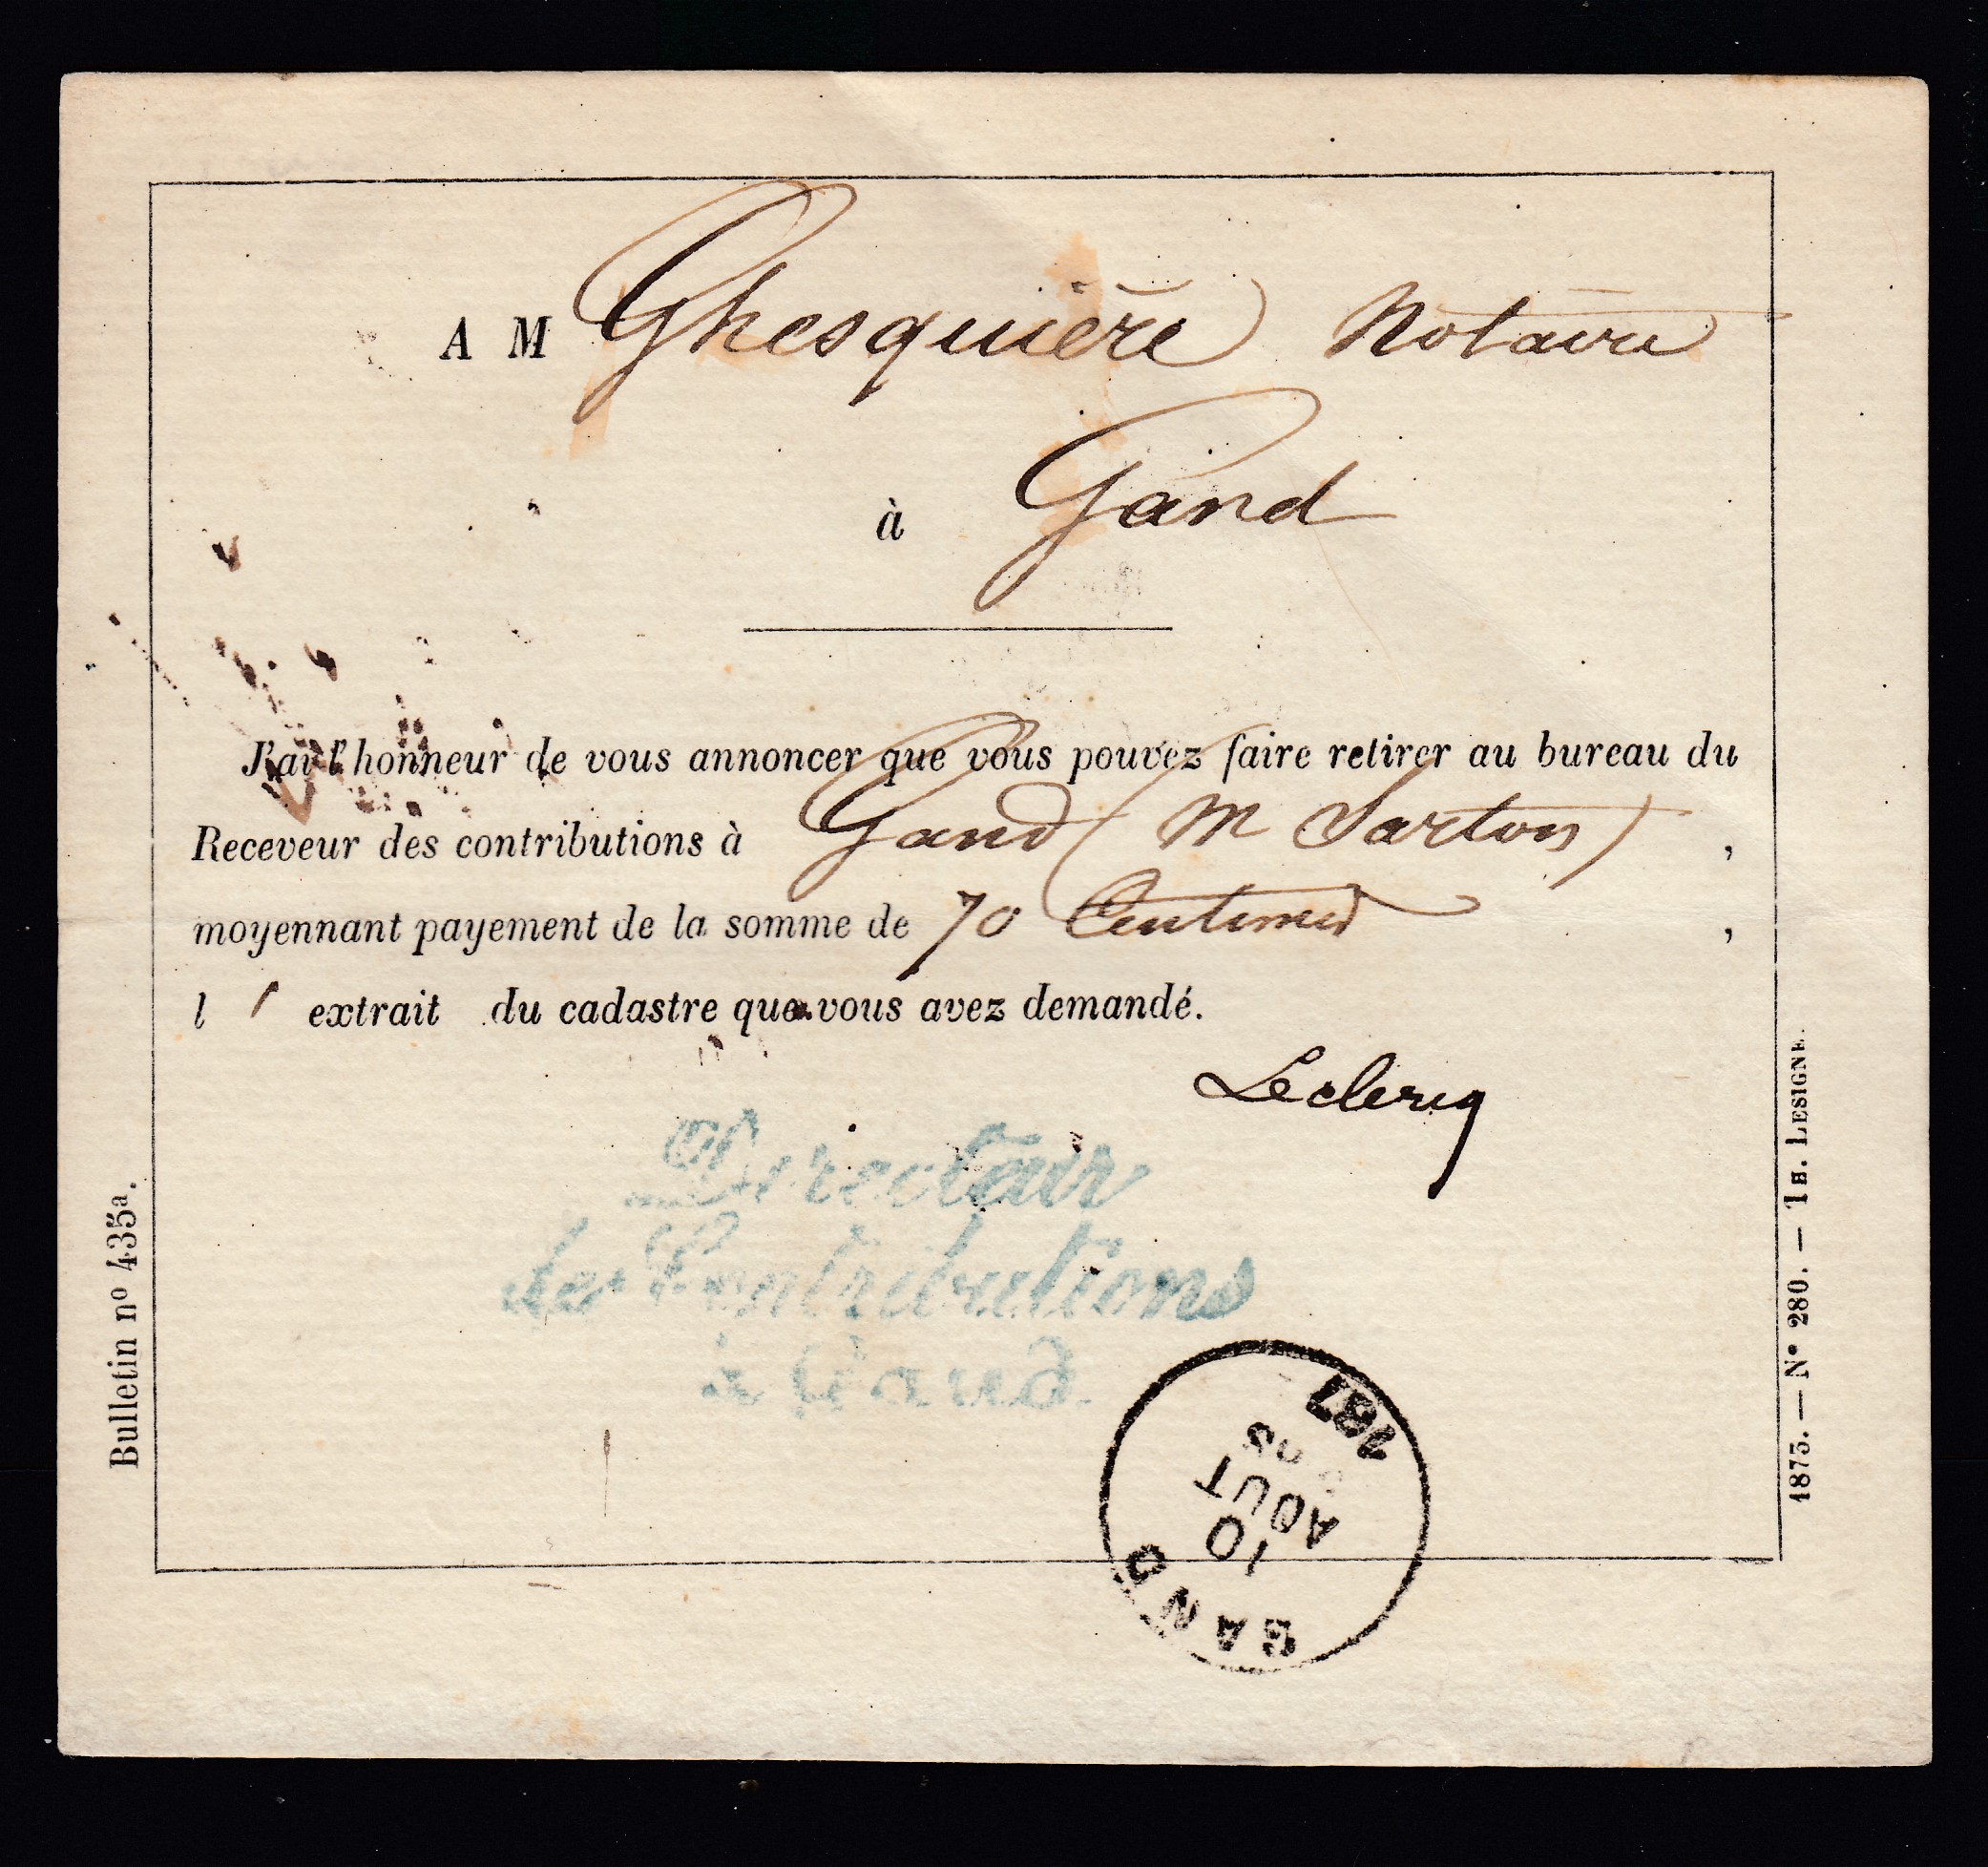 A M Ghesquière Notaire
à Gand
J'ai l'honneur de vous annoncer que vous pouvez faire retirer au bureau du
Receveur des contributions à Gand (M Sarton) ,
moyennant payement de la somme de 70 Centimes ,
l' extrait du cadastre que vous avez demandé.
Leclercq
Directeur
des Contributions
à Gand.
GAND
10
AOUT
187
Bulletin nº 435a.
1875. — Nº 280. — IH. LESIGNE.